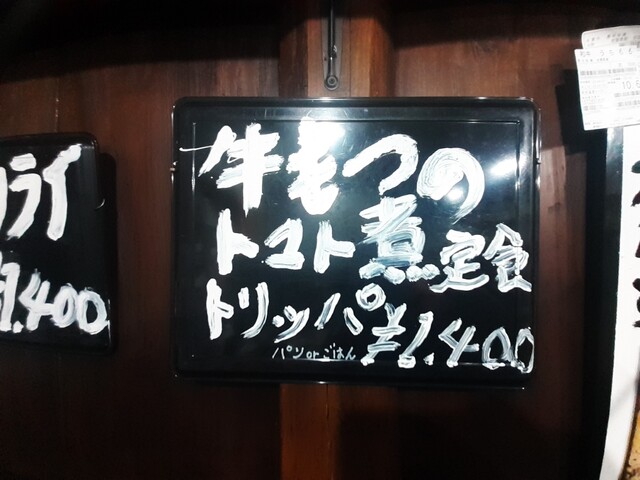 牛もつの
トマト煮定食
トリッパ ¥1,400
パン or ごはん
ライ
1,400